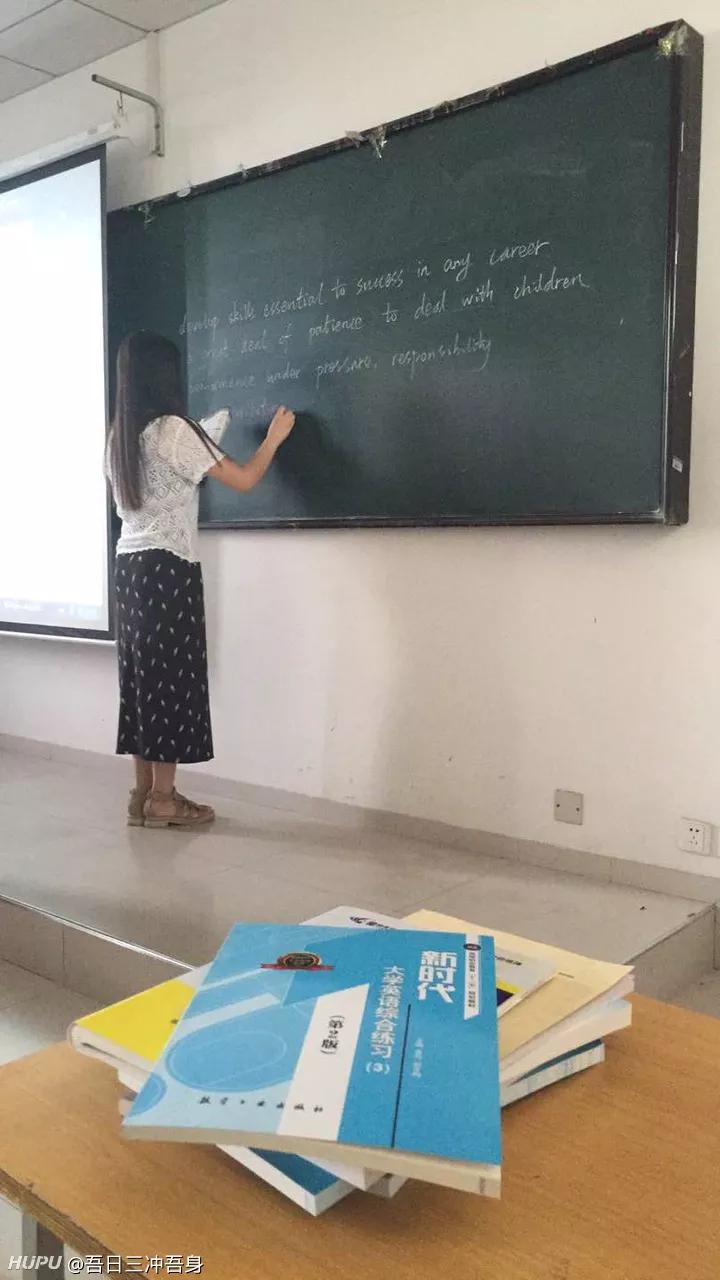 develop skills essential to success in any career
a great deal of patience to deal with children
performance under pressure, responsibility
新时代
大学英语综合练习
(3)
(第2版)
HUPU @吾日三冲吾身